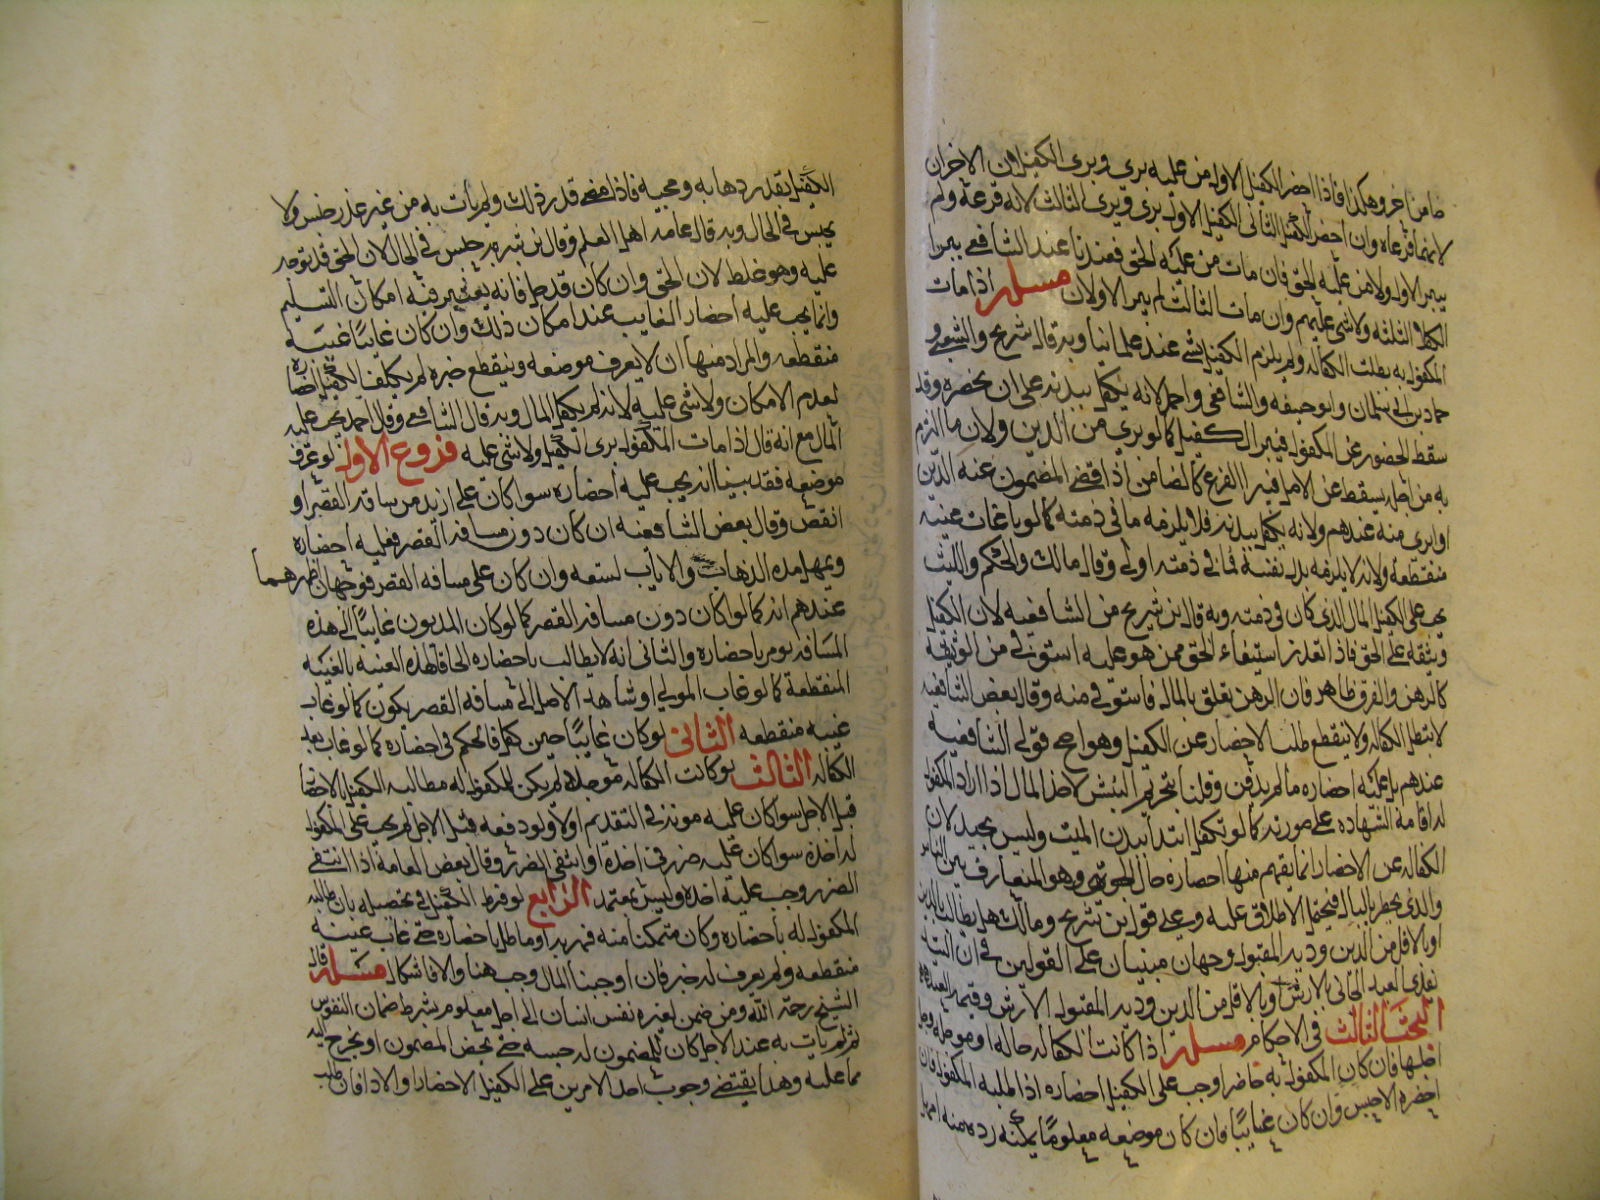 ضامنا اخر وهكذا فاذا احضر الكفيل الاول من عليه برى وبرى الكفيلان الاخران
لانهما فرعاه وان احضر الكفيل الثانى الكفيل الاول برى وبرى الثالث لانه فرعه ولم
يبرا الاول ولا من عليه الحق فان مات من عليه الحق فعندنا عند الشافعي يبرا
الكفلا الثلثه ولا شى عليهم وان مات الثالث لم يبرا الاولان مسله اذا مات
المكفول به بطلت الكفاله ولم يلزم الكفيل شى عند علمائنا وبه قال شريح والشعبي و
حماد بن ابى سليمان وابو حنيفه والشافعي واحمد لانه تكفل ببدنه على ان يحضره وقد
سقط الحضور عن المكفول فيبرا الكفيل كما لو برى من الدين ولان ما التزم
به من اجله يسقط عن الاصل فيبرا الفرع كالضامن اذا قضى المضمون عنه الدين
او ابرى منه عندهم ولانه تكفل ببدنه فلا يلزمه ما فى ذمته كما لو غاب غيبه
منقطعه ولانه لا يلزمه بدل نفسه فما فى ذمته اولى وقال مالك والحكم والليث
يجب على الكفيل المال الذى كان فى ذمته وبه قال ابن شريح من الشافعيه لان الكفيل
وثيقه على الحق فاذا تعذر استيفاء الحق ممن هو عليه استوفى من الوثيقه
كالرهن والفرق ظاهر فان الرهن تعلق بالمال فاستوفى منه وقال بعض الشافعيه
لا تبطل الكفاله ولا ينقطع طلب الاحضار عن الكفيل وهو اصح قولى الشافعيه
عندهم بل عليه احضاره ما لم يدفن وقلنا بتحريم النبش لاخذ المال اذا اراد المكفول
له اقامه الشهاده على صورته كما لو تكفل ابتدا ببدن الميت وليس بجيد لان
الكفاله عن الاحضار انما يفهم منها احضاره حال الحيوه وهو المتعارف بين الناس
والذى يخطر بالبال فيحمل الاطلاق عليه وعلى قول ابن شريح ومالك هل يطالب بالدين
او بالاقل من الدين وديه المقتول وجهان مبنيان على القولين فى ان السيد
يفدى العبد الجانى بالارش او بالاقل من الدين وديه المقتول الارش وقيمه العبد
البحث الثالث فى الاحكام مسله اذا كانت الكفاله حاله او موجله وحل
اجلها فان كان المكفول به حاضرا وجب على الكفيل احضاره اذا طلبه المكفول له فان
احضره والا حبس وان كان غايبا فان كان موضعه معلوما يمكنه رده منه امهل
الكفيل بقدر ذهابه ومجيه فاذا مضى قدر ذلك ولم يات به من غير عذر حبس ولا
يحبس فى الحال وبه قال عامه اهل العلم وقال ابن شبرمه يحبس فى الحال لان الحق قد توجه
عليه وهو غلط لان الحق وان كان قد حل فانه يعتبر فيه امكان التسليم
وانما يجب عليه احضار الغايب عند امكان ذلك وان كان غايبا غيبه
منقطعه والمراد منها ان لا يعرف موضعه وينقطع خبره لم يكلف الكفيل احضاره
لعدم الامكان ولا شى عليه لانه لم يكفل المال وبه قال الشافعي وقال احمد يجب عليه
المال مع انه قال اذا مات المكفول برى الكفيل ولا شى عليه فروع الاول لو عرف
موضعه فقد بينا انه يجب عليه احضاره سوا كان على ازيد من مسافه القصر او
انقص وقال بعض الشافعيه ان كان دون مسافه القصر فعليه احضاره
ويمهل مده الذهاب والاياب لستعه وان كان على مسافه القصر فوجهان اظهرهما
عندهم انه كما لو كان دون مسافه القصر كما لو كان المديون غايبا الى هذه
المسافه يومر باحضاره والثانى انه لا يطالب باحضاره الحاقا لهذه الغيبه بالغيبه
المنقطعه كما لو غاب المولى او شاهد الاصل الى مسافه القصر يكون كما لو غاب
غيبه منقطعه الثانى لو كان غايبا حين كفل فالحكم فى احضاره كما لو غاب بعد
الكفاله الثالث لو كانت الكفاله موجله لم يكن للمكفول له مطالبه الكفيل بالاحضار
قبل الاجل سوا كان عليه مونه فى التقديم او لا ولو دفعه قبل الاجل لم يجب على المكفول
له اخذه سوا كان عليه ضرر فى اخذه او انتفى الضرر وقال بعض العامه اذا انتفى
الضرر وجب عليه اخذه وليس بمعتمد الرابع لو فرط الكفيل فى تحصيله بان طالبه
المكفول له باحضاره وكان متمكنا منه فهربه او ماطل باحضاره حتى غاب غيبه
منقطعه ولم يعرف له خبر فان اوجبنا المال وجب هنا والا فاشكال مسله قال
الشيخ رحمه الله ومن ضمن لغيره نفس انسان الى اجل معلوم بشرط ضمان النفوس
ثم لم يات به عند الاجل كان للمضمون له حبسه حتى يحضر المضمون او يخرج اليه
مما عليه وهذا يقتضى وجوب احد الامرين على الكفيل الاحضار او الادا فان طلب